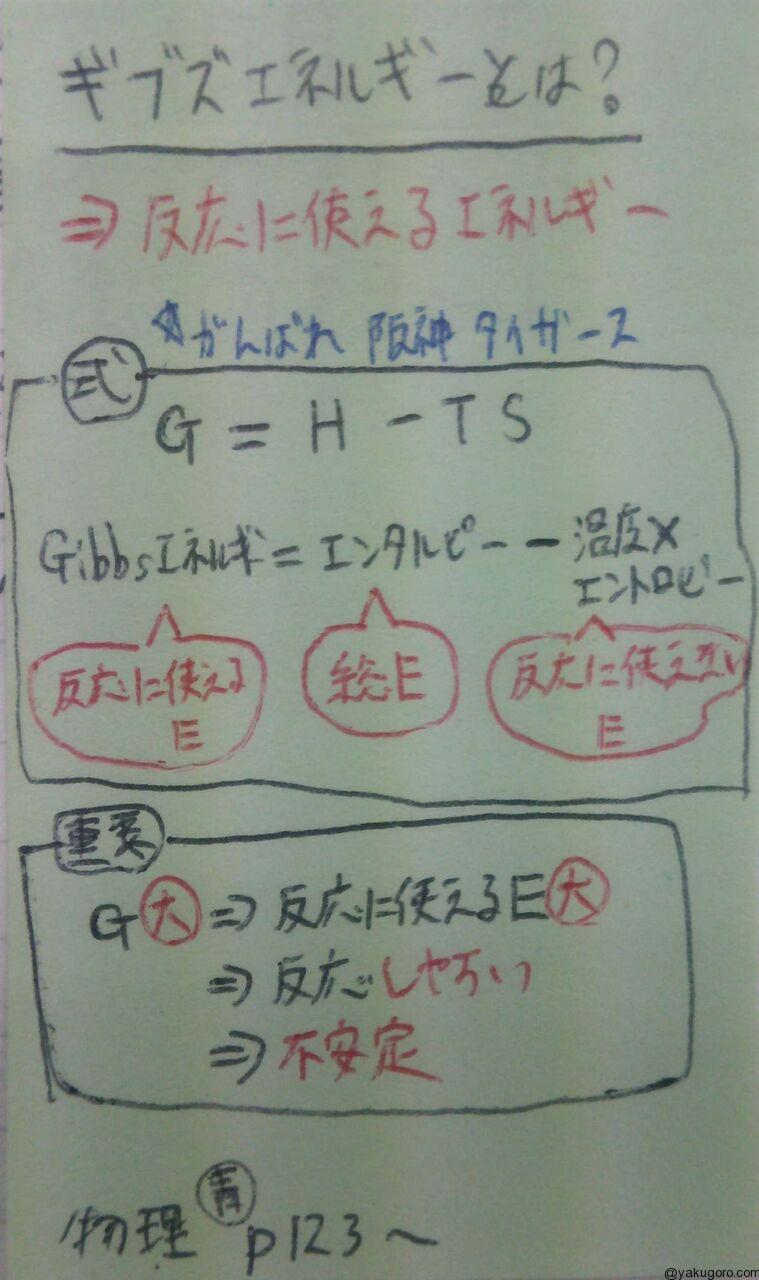 ギブズエネルギーとは?
⇒ 反応に使えるエネルギー
☆がんばれ 阪神タイガース
式
G = H - T S
Gibbsエネルギ = エンタルピー - 温度×
エントロピー
反応に使える
E
総E
反応に使えない
E
重要
G 大 ⇒ 反応に使えるE 大
⇒ 反応しやすい
⇒ 不安定
物理 青 p123〜
@yakugoro.com